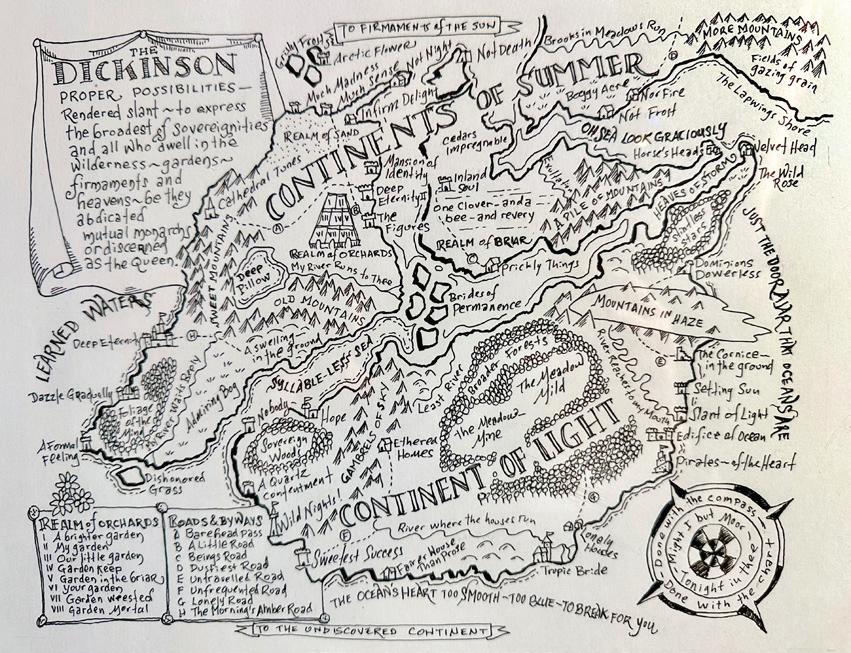 TO FIRMAMENTS OF THE SUN
THE
DICKINSON
PROPER POSSIBILITIES—
Rendered slant ~ to express
the broadest of Sovereignities
and all who dwell in the
wilderness ~ gardens ~
firmaments and
heavens ~ be they
abdicated
mutual monarchs
or discerned
as the Queen
Arctic Flower
Much Madness
Much Sense
Not Night
Not Death
Infirm Delight
Brooks in Meadows Run
MORE MOUNTAINS
Fields of
gazing grain
The Lapwings Shore
CONTINENTS OF SUMMER
Boggy Acre
Nor Fire
Not Frost
OH SEA LOOK GRACIOUSLY
Horse's Heads
Velvet Head
The Wild
Rose
REALM of SAND
Cathedral Tunes
Cedars
Impregnable
Mansion of
Identity
Deep
Eternity II
The
Figures
Inland
Soul
one Clover—and a
bee—and revery
REALM of BRIAR
Prickly Things
A PILE OF MOUNTAINS
HEAVES OF STORM
Dominions
Powerless
JUST THE DOOR AJAR THAT OCEANS ARE
SWEET MOUNTAINS
REALM of ORCHARDS
My River Runs to Thee
Deep
Pillow
OLD MOUNTAINS
Brides of
Permanence
MOUNTAINS IN HAZE
LEARNED WATERS
Deep Eternity
A swelling
in the ground
SYLLABLE-LESS SEA
Dazzle Gradually
Foliage
of the
Mind
Admiring Bog
A Formal
Feeling
Dishonored
Grass
Nobody
Hope
Sovereign
Woods
A Quartz
contentment
Wild Nights!
GAMBRELS OF SKY
Least River
Ethered
Homes
Broader Forests
The Meadow
Mild
The Meadow
Mine
CONTINENT OF LIGHT
The Cornice—
in the ground
Setting Sun
Slant of Light
Edifice of Ocean
Pirates—of the Heart
River where the houses run
Sweetest Success
Fairer House
Than Prose
Lonely
Houses
Tropic Bride
REALM of ORCHARDS
I A brighter garden
II My garden
III Our little garden
IV Garden Keep
V Garden in the Briar
VI Your garden
VII Garden Weested
VIII Garden Mortal
ROADS & BYWAYS
A Barehead Pass
B A Little Road
C Beings Road
D Dustiest Road
E Untravelled Road
F Unfrequented Road
G Lonely Road
H The Morning's Amber Road
Done with the compass—
Might I but Moor—
Tonight in thee
Done with the chart
THE OCEANS HEART TOO SMOOTH—TOO BLUE—TO BREAK FOR YOU
TO THE UNDISCOVERED CONTINENT